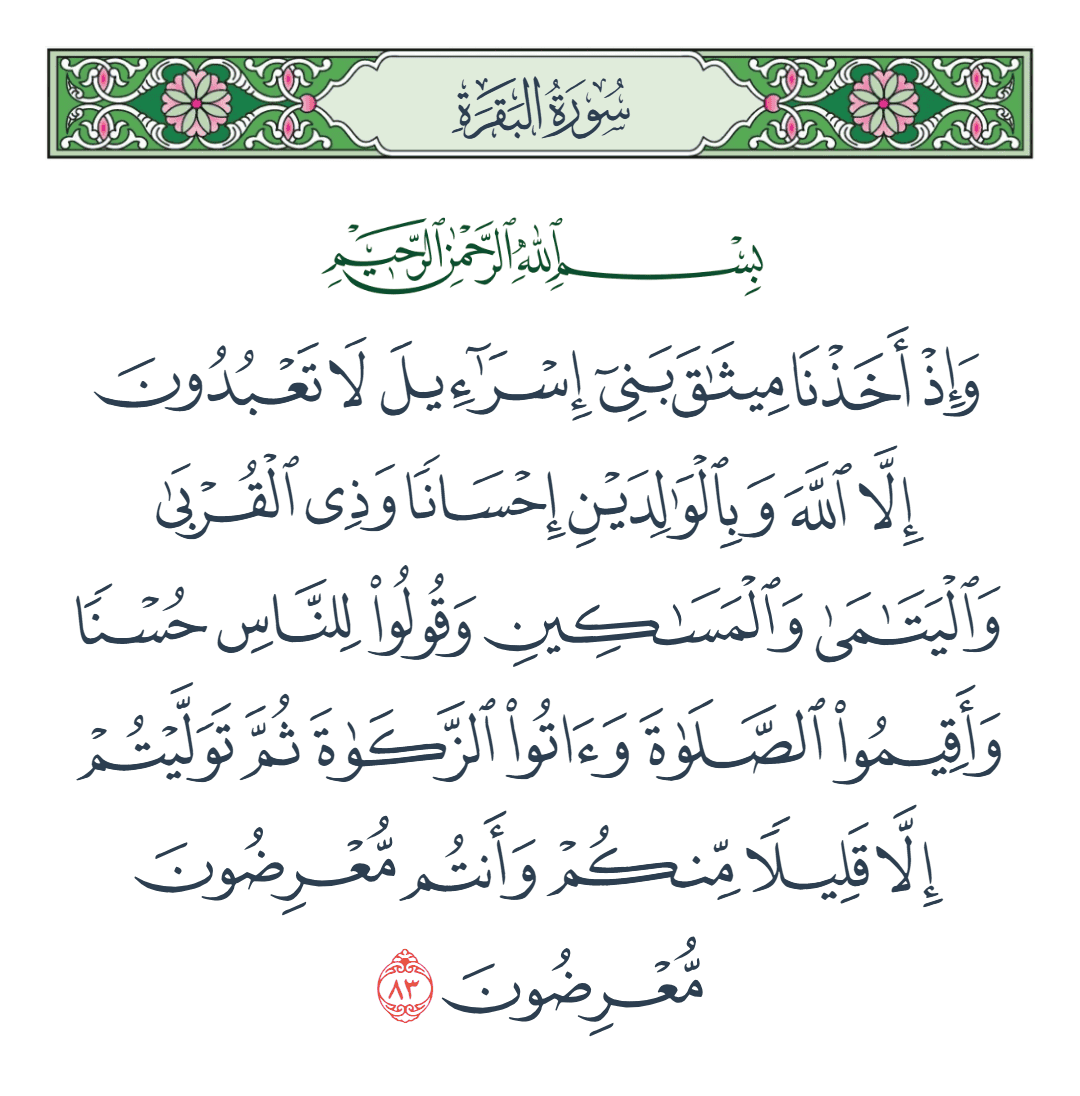 سُورَةُ البَقَرَةِ
بِسْمِ ٱللَّهِ ٱلرَّحْمَٰنِ ٱلرَّحِيمِ
وَإِذْ أَخَذْنَا مِيثَٰقَ بَنِىٓ إِسْرَٰٓءِيلَ لَا تَعْبُدُونَ
إِلَّا ٱللَّهَ وَبِٱلْوَٰلِدَيْنِ إِحْسَانًا وَذِى ٱلْقُرْبَىٰ
وَٱلْيَتَٰمَىٰ وَٱلْمَسَٰكِينِ وَقُولُوا۟ لِلنَّاسِ حُسْنًا
وَأَقِيمُوا۟ ٱلصَّلَوٰةَ وَءَاتُوا۟ ٱلزَّكَوٰةَ ثُمَّ تَوَلَّيْتُمْ
إِلَّا قَلِيلًا مِّنكُمْ وَأَنتُم مُّعْرِضُونَ
مُّعْرِضُونَ ٨٣